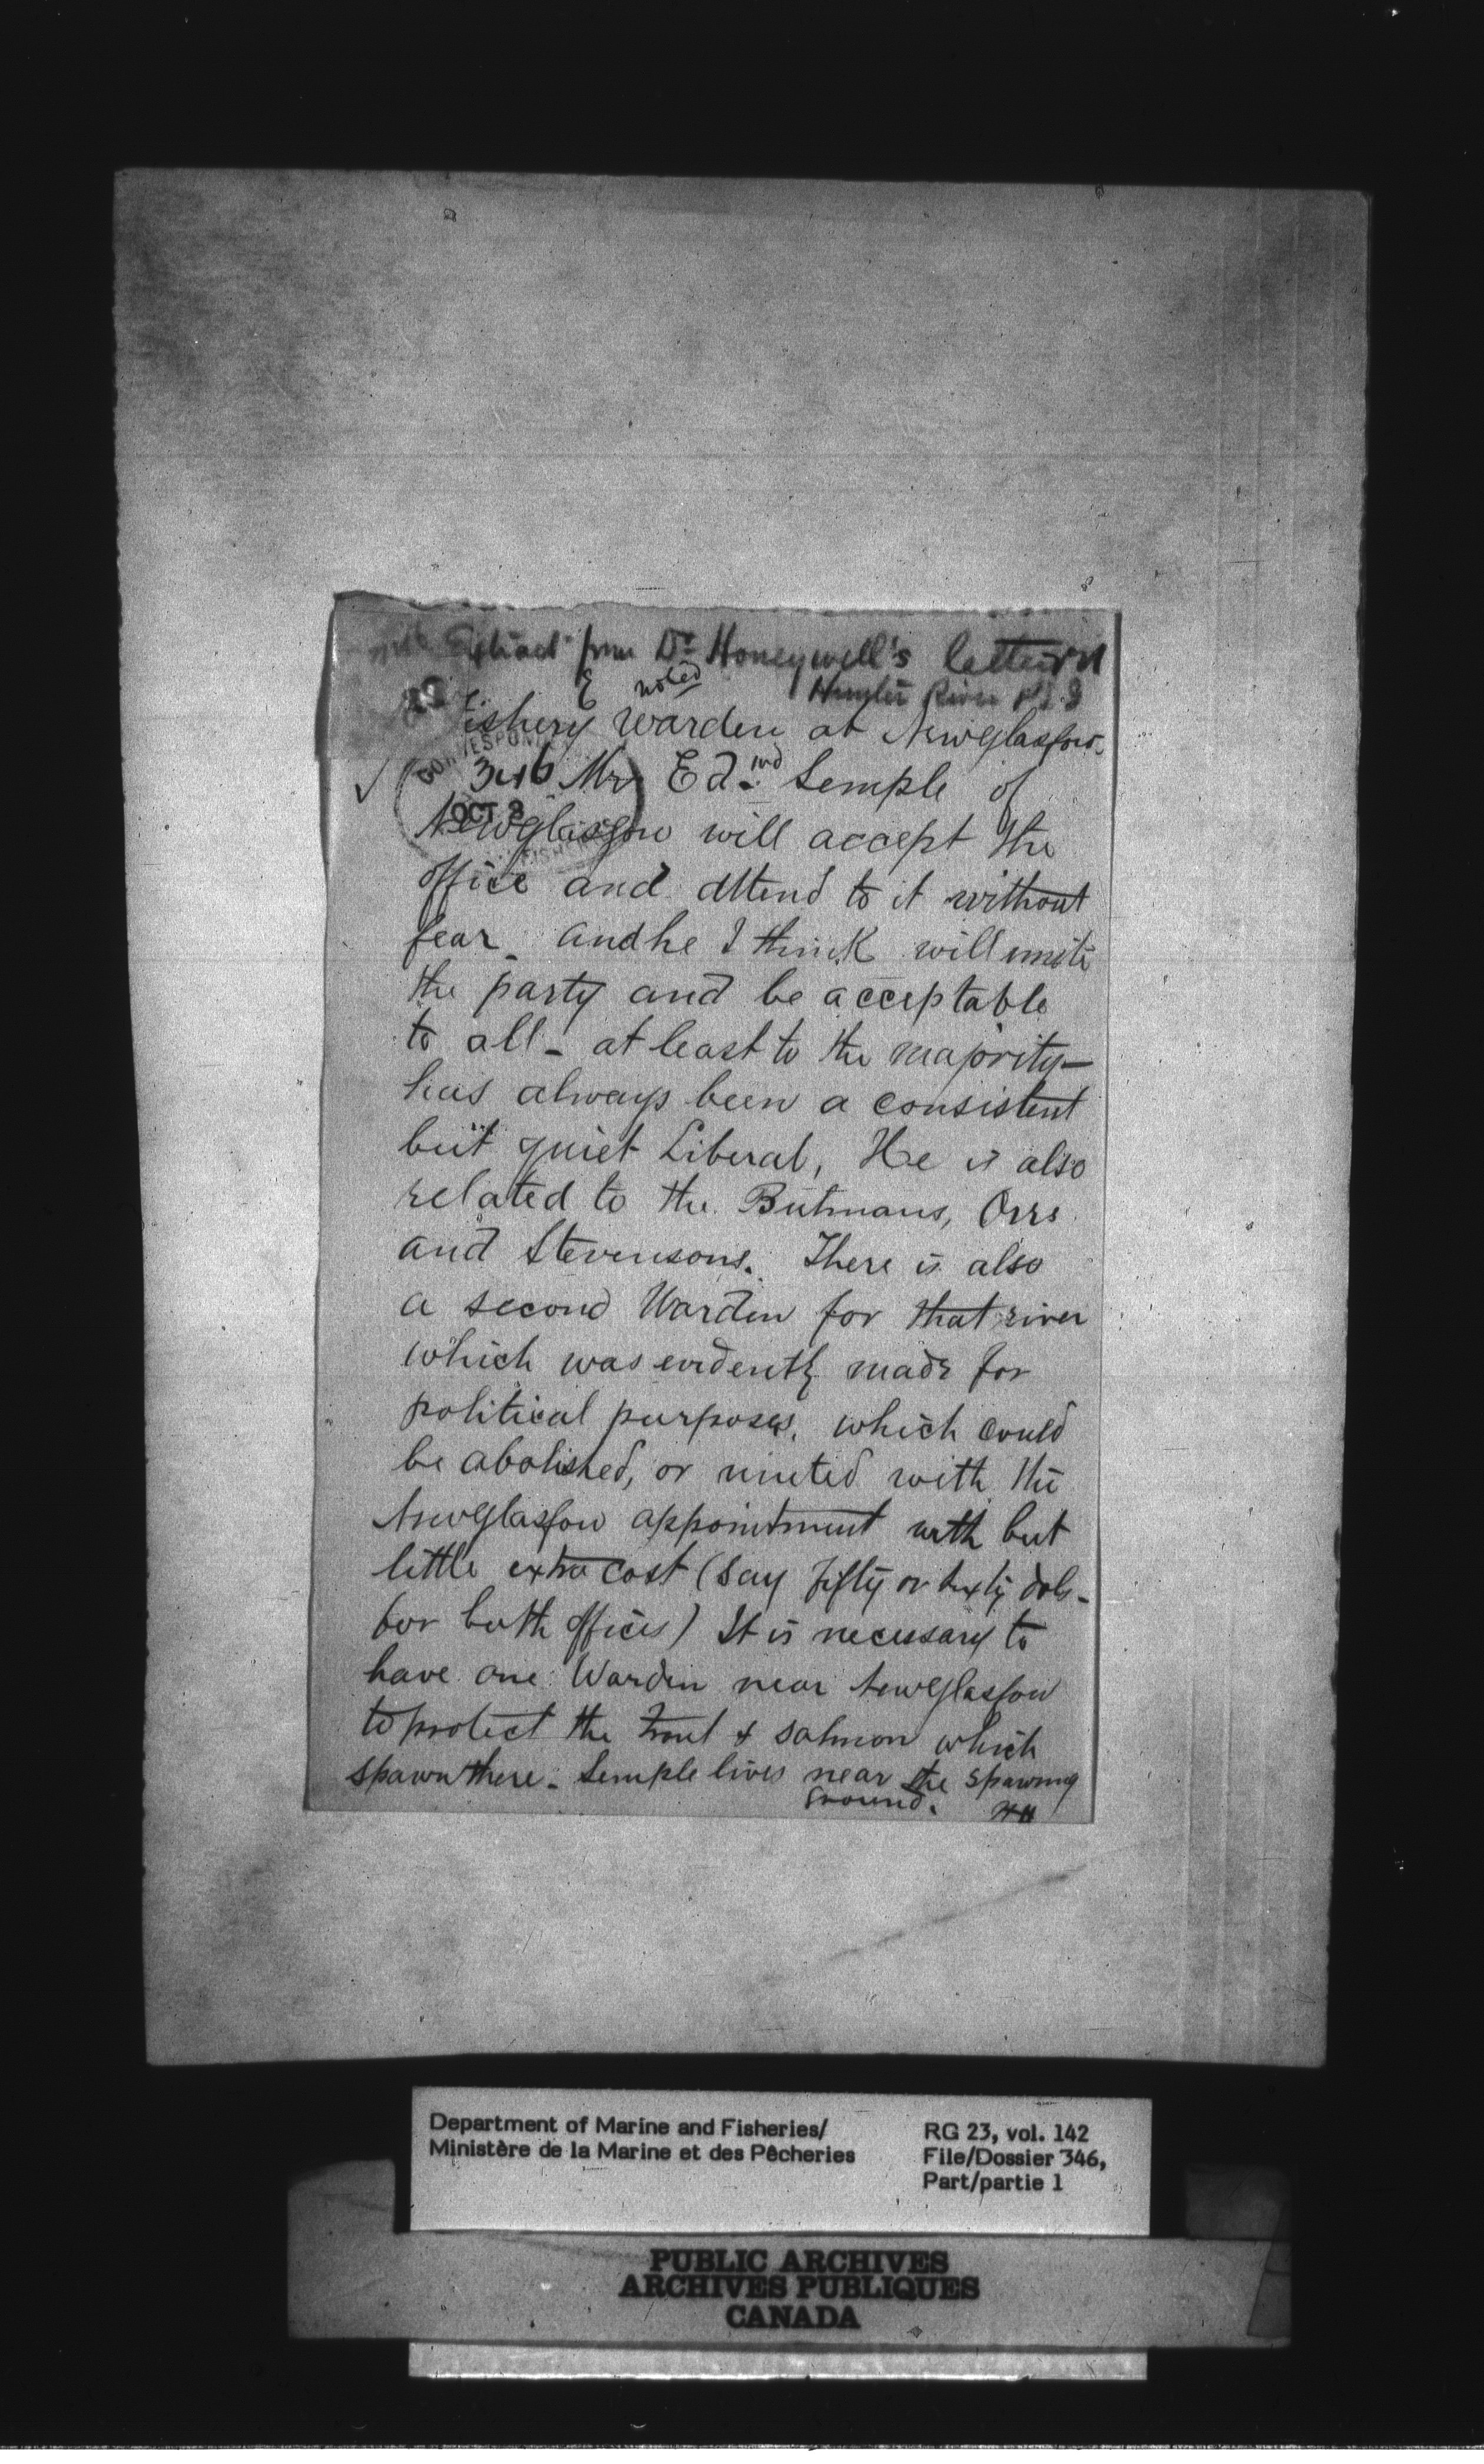 Extract from Dr Honeywell's letter
Hunter River P.E.I
noted
Fishery Warden at Newglasgow.
346 Mr Edmd Semple of
OCT 8
Newglasgow will accept the
office and attend to it without
fear. and he I think will unite
the party and be acceptable
to all - at least to the majority -
has always been a consistent
but quiet Liberal, He is also
related to the Bulmans, Orrs
and Stevensons. There is also
a second Warden for that river
which was evidently made for
political purposes, which could
be abolished, or united with the
Newglasgow appointment with but
little extra cost (say fifty or sixty dols -
for both offices) It is necessary to
have one Warden near Newglasgow
to protect the Trout & salmon which
spawn there. Semple lives near the spawning
Ground. HH
Department of Marine and Fisheries/
Ministère de la Marine et des Pêcheries
RG 23, vol. 142
File/Dossier 346,
Part/partie 1
PUBLIC ARCHIVES
ARCHIVES PUBLIQUES
CANADA